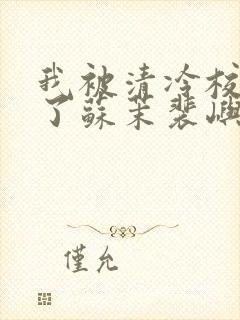 我被清冷校
了蘇茉裴嶼
僅允